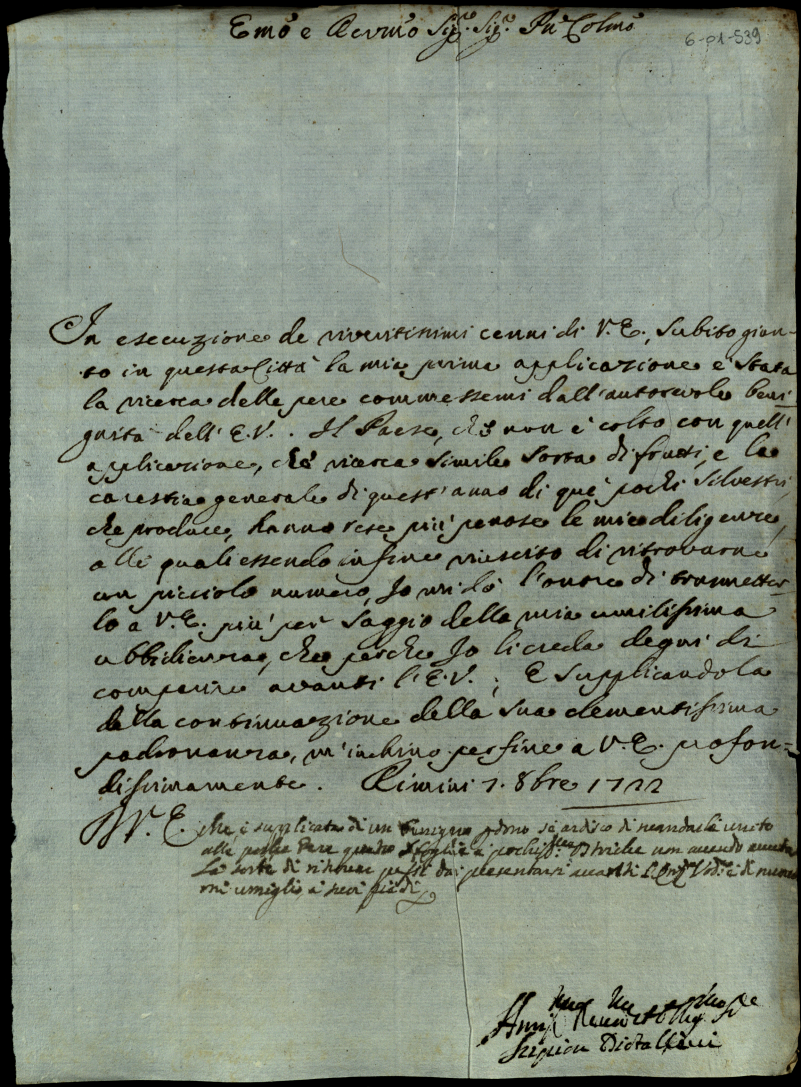 Emo e Revmo Sigr. Sigr. Pne Colmo
6-01-539
In esecuzione de riveritissimi cenni di V.E., subito gion-
to in questa Città la mia prima applicazione è stata
la ricerca delle pere commessemi dall'autorevole beni
gnità dell'E.V.. Il Paese, che non è colto con quell'
applicazione, che ricerca simile sorta di frutti, e la
carestia generale di quest'anno di que' pochi silvestri
che produce, hanno rese più penose le mie diligenze,
alli quali essendo infine riescito di ritrovarne
un picciolo numero, Io mi dò l'onore di trasmetter-
lo a V.E. più per saggio della mia umilissima
ubbidienza, che perche Io li creda degni di
comparire avanti l'E.V.; E supplicandola
della continuazione della sua clementissima
padronanza, m'inchino per fine a V.E. profon=
dissimamente. Rimini 7. 8bre 1722
V.E. che è supplicata di un benigno se ardisco di mandarle unite
alle pere quatro e poche non avendo avuta
la sorte di ritrovar presentarsi avanti di nuovo
mi umiglio a suoi piedi
Umo